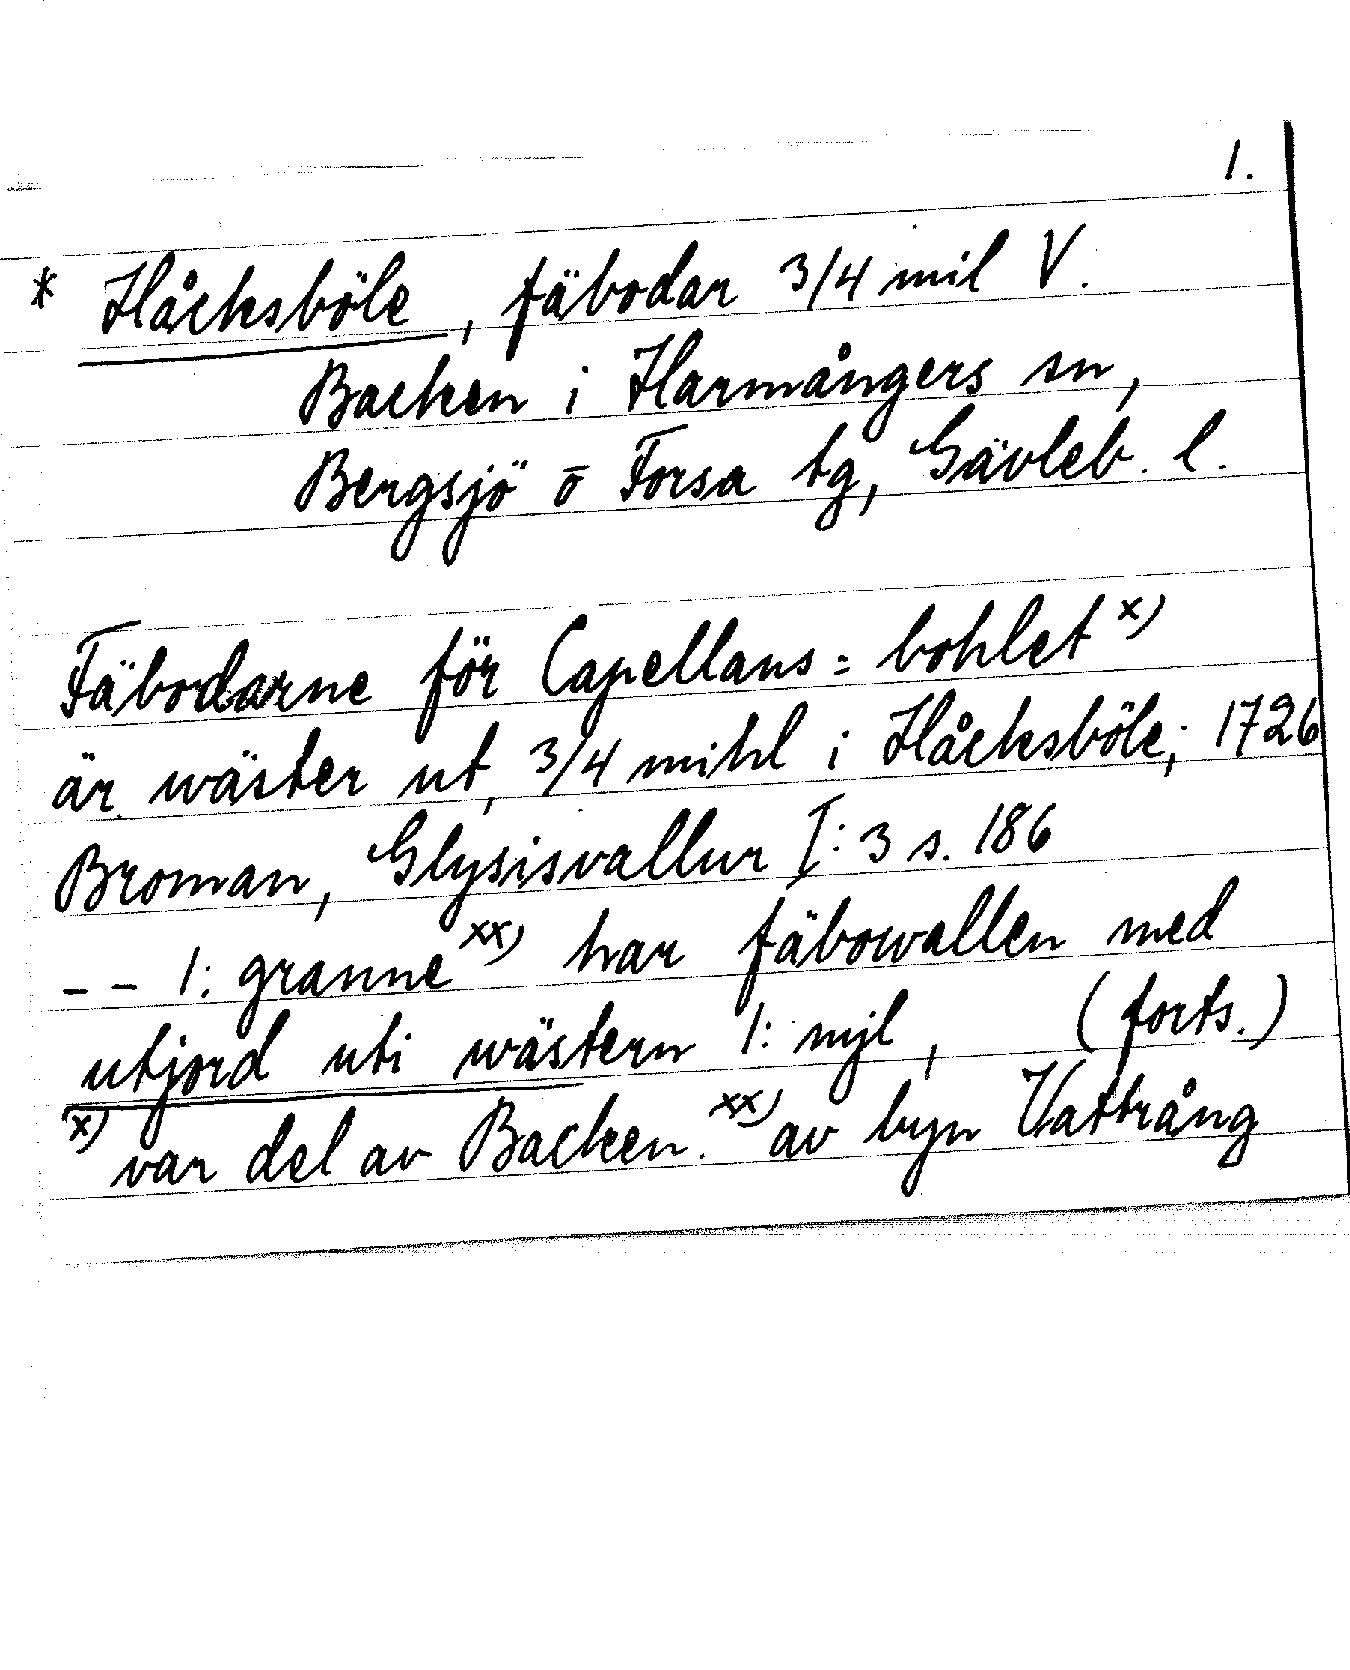 1.
* Håcksböle, fäbodar 3/4 mil V.
Backen i Harmångers sn,
Bergsjö o Forsa tg, Gävleb. l.
Fäbodarne för Capellans=bohlet x)
är wäster ut, 3/4 mihl i Håcksböle; 1726
Broman, Glysisvallur I:3 s. 186
-- 1: granne xx) har fäbowallen med
utjord uti wästern 1: mjl, (forts.)
x) var del av Backen. xx) av byn Vattrång